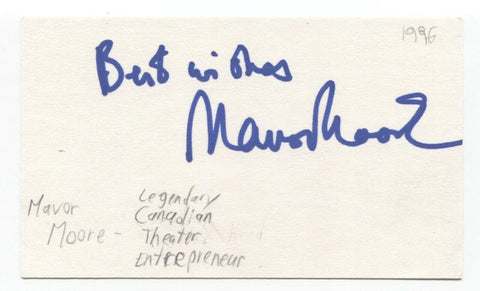 1996
Best wishes
Mavor Moore
Mavor
Moore -
Legendary
Canadian
Theater
Entrepreneur